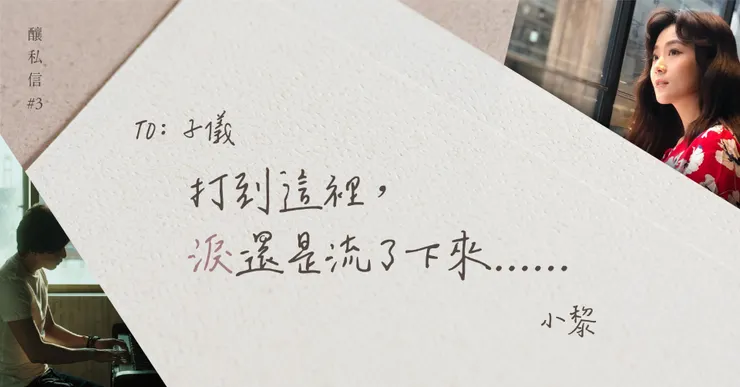 釀私信
#3
TO: 子儀
打到這裡，
淚還是流了下來......
小黎